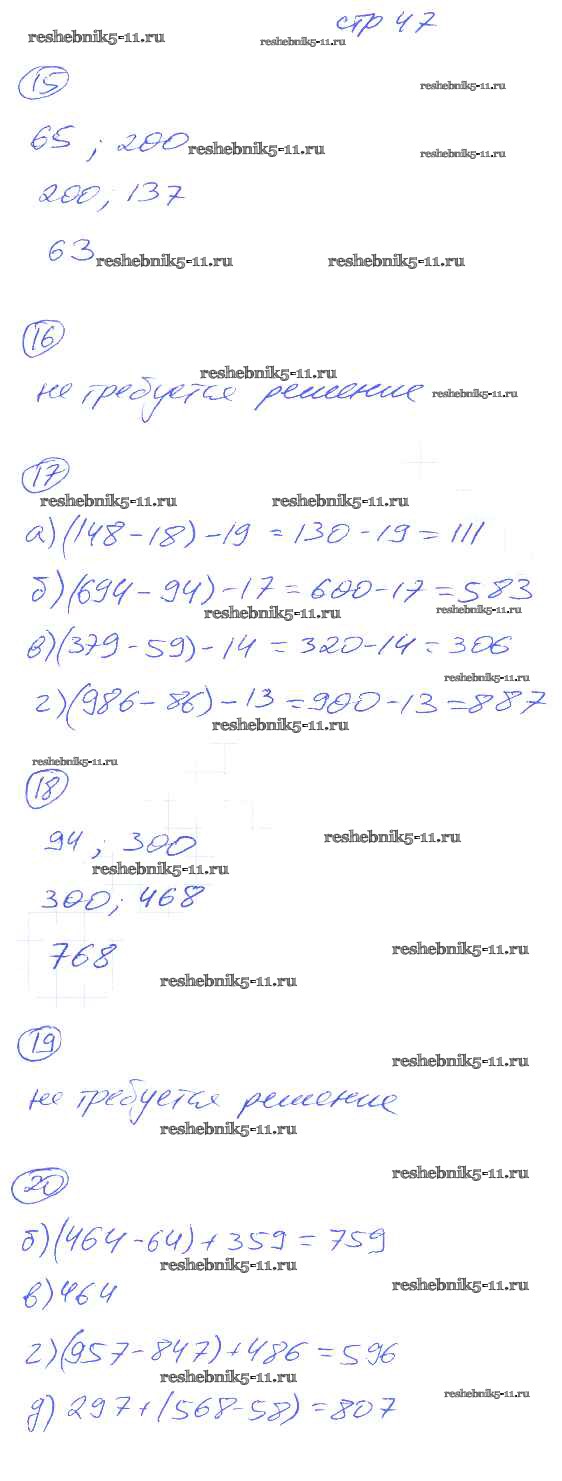 стр 47
reshebnik5-11.ru
reshebnik5-11.ru
15
reshebnik5-11.ru
65 ; 200
reshebnik5-11.ru
reshebnik5-11.ru
200; 137
63
reshebnik5-11.ru
reshebnik5-11.ru
16
reshebnik5-11.ru
не требуется решение
reshebnik5-11.ru
17
reshebnik5-11.ru
reshebnik5-11.ru
а) (148-18)-19=130-19=111
б) (694-94)-17=600-17=583
reshebnik5-11.ru
reshebnik5-11.ru
в) (379-59)-14=320-14=306
reshebnik5-11.ru
г) (986-86)-13=900-13=887
reshebnik5-11.ru
reshebnik5-11.ru
18
94 ; 300
reshebnik5-11.ru
reshebnik5-11.ru
300; 468
768
reshebnik5-11.ru
reshebnik5-11.ru
19
reshebnik5-11.ru
не требуется решение
reshebnik5-11.ru
reshebnik5-11.ru
20
б) (464-64)+359=759
reshebnik5-11.ru
в) 464
reshebnik5-11.ru
г) (957-847)+486=596
reshebnik5-11.ru
reshebnik5-11.ru
д) 297+(568-58)=807